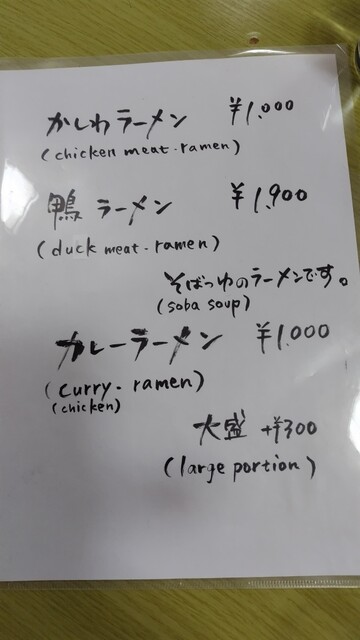 かしわラーメン ¥1.000
(chicken meat・ramen)
鴨 ラーメン ¥1.900
(duck meat・ramen)
そばつゆのラーメンです。
(soba soup)
カレーラーメン ¥1.000
(curry・ramen)
(chicken)
大盛 +¥300
(large portion)